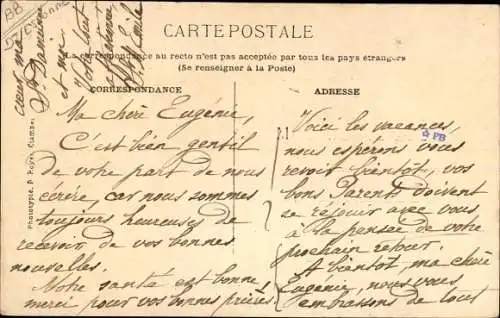 CARTE POSTALE
La correspondance au recto n'est pas acceptée par tous les pays étrangers
(Se renseigner à la Poste)
CORRESPONDANCE
Ma chère Eugénie,
C'est bien gentil
de votre part de nous
écrire, car nous sommes
toujours heureuses de
recevoir de vos bonnes
nouvelles.
Notre santé est bonne,
merci pour vos bonnes prières.
ADRESSE
Voici les vacances,
nous espérons vous
revoir bientôt, vos
bons Parents doivent
se réjouir avec vous
à la pensée de votre
prochain retour.
A bientôt, ma chère
Eugénie, nous vous
embrassons de tout
cœur ma
et moi
Votre tout
Phototypie P. Royer, Nancy
PB
BB